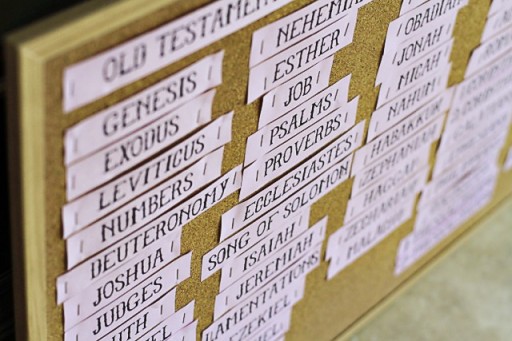 OLD TESTAMENT
GENESIS
EXODUS
LEVITICUS
NUMBERS
DEUTERONOMY
JOSHUA
JUDGES
UTH
EL
NEHEMIA
ESTHER
JOB
PSALMS
PROVERBS
ECCLESIASTES
SONG OF SOLOMON
ISAIAH
JEREMIAH
LAMENTATIONS
EZEKIEL
OBADIAH
JONAH
MICAH
NAHUM
HABAKKUK
ZEPHANIAH
HAGGAI
ZECHARIAH
MALACHI